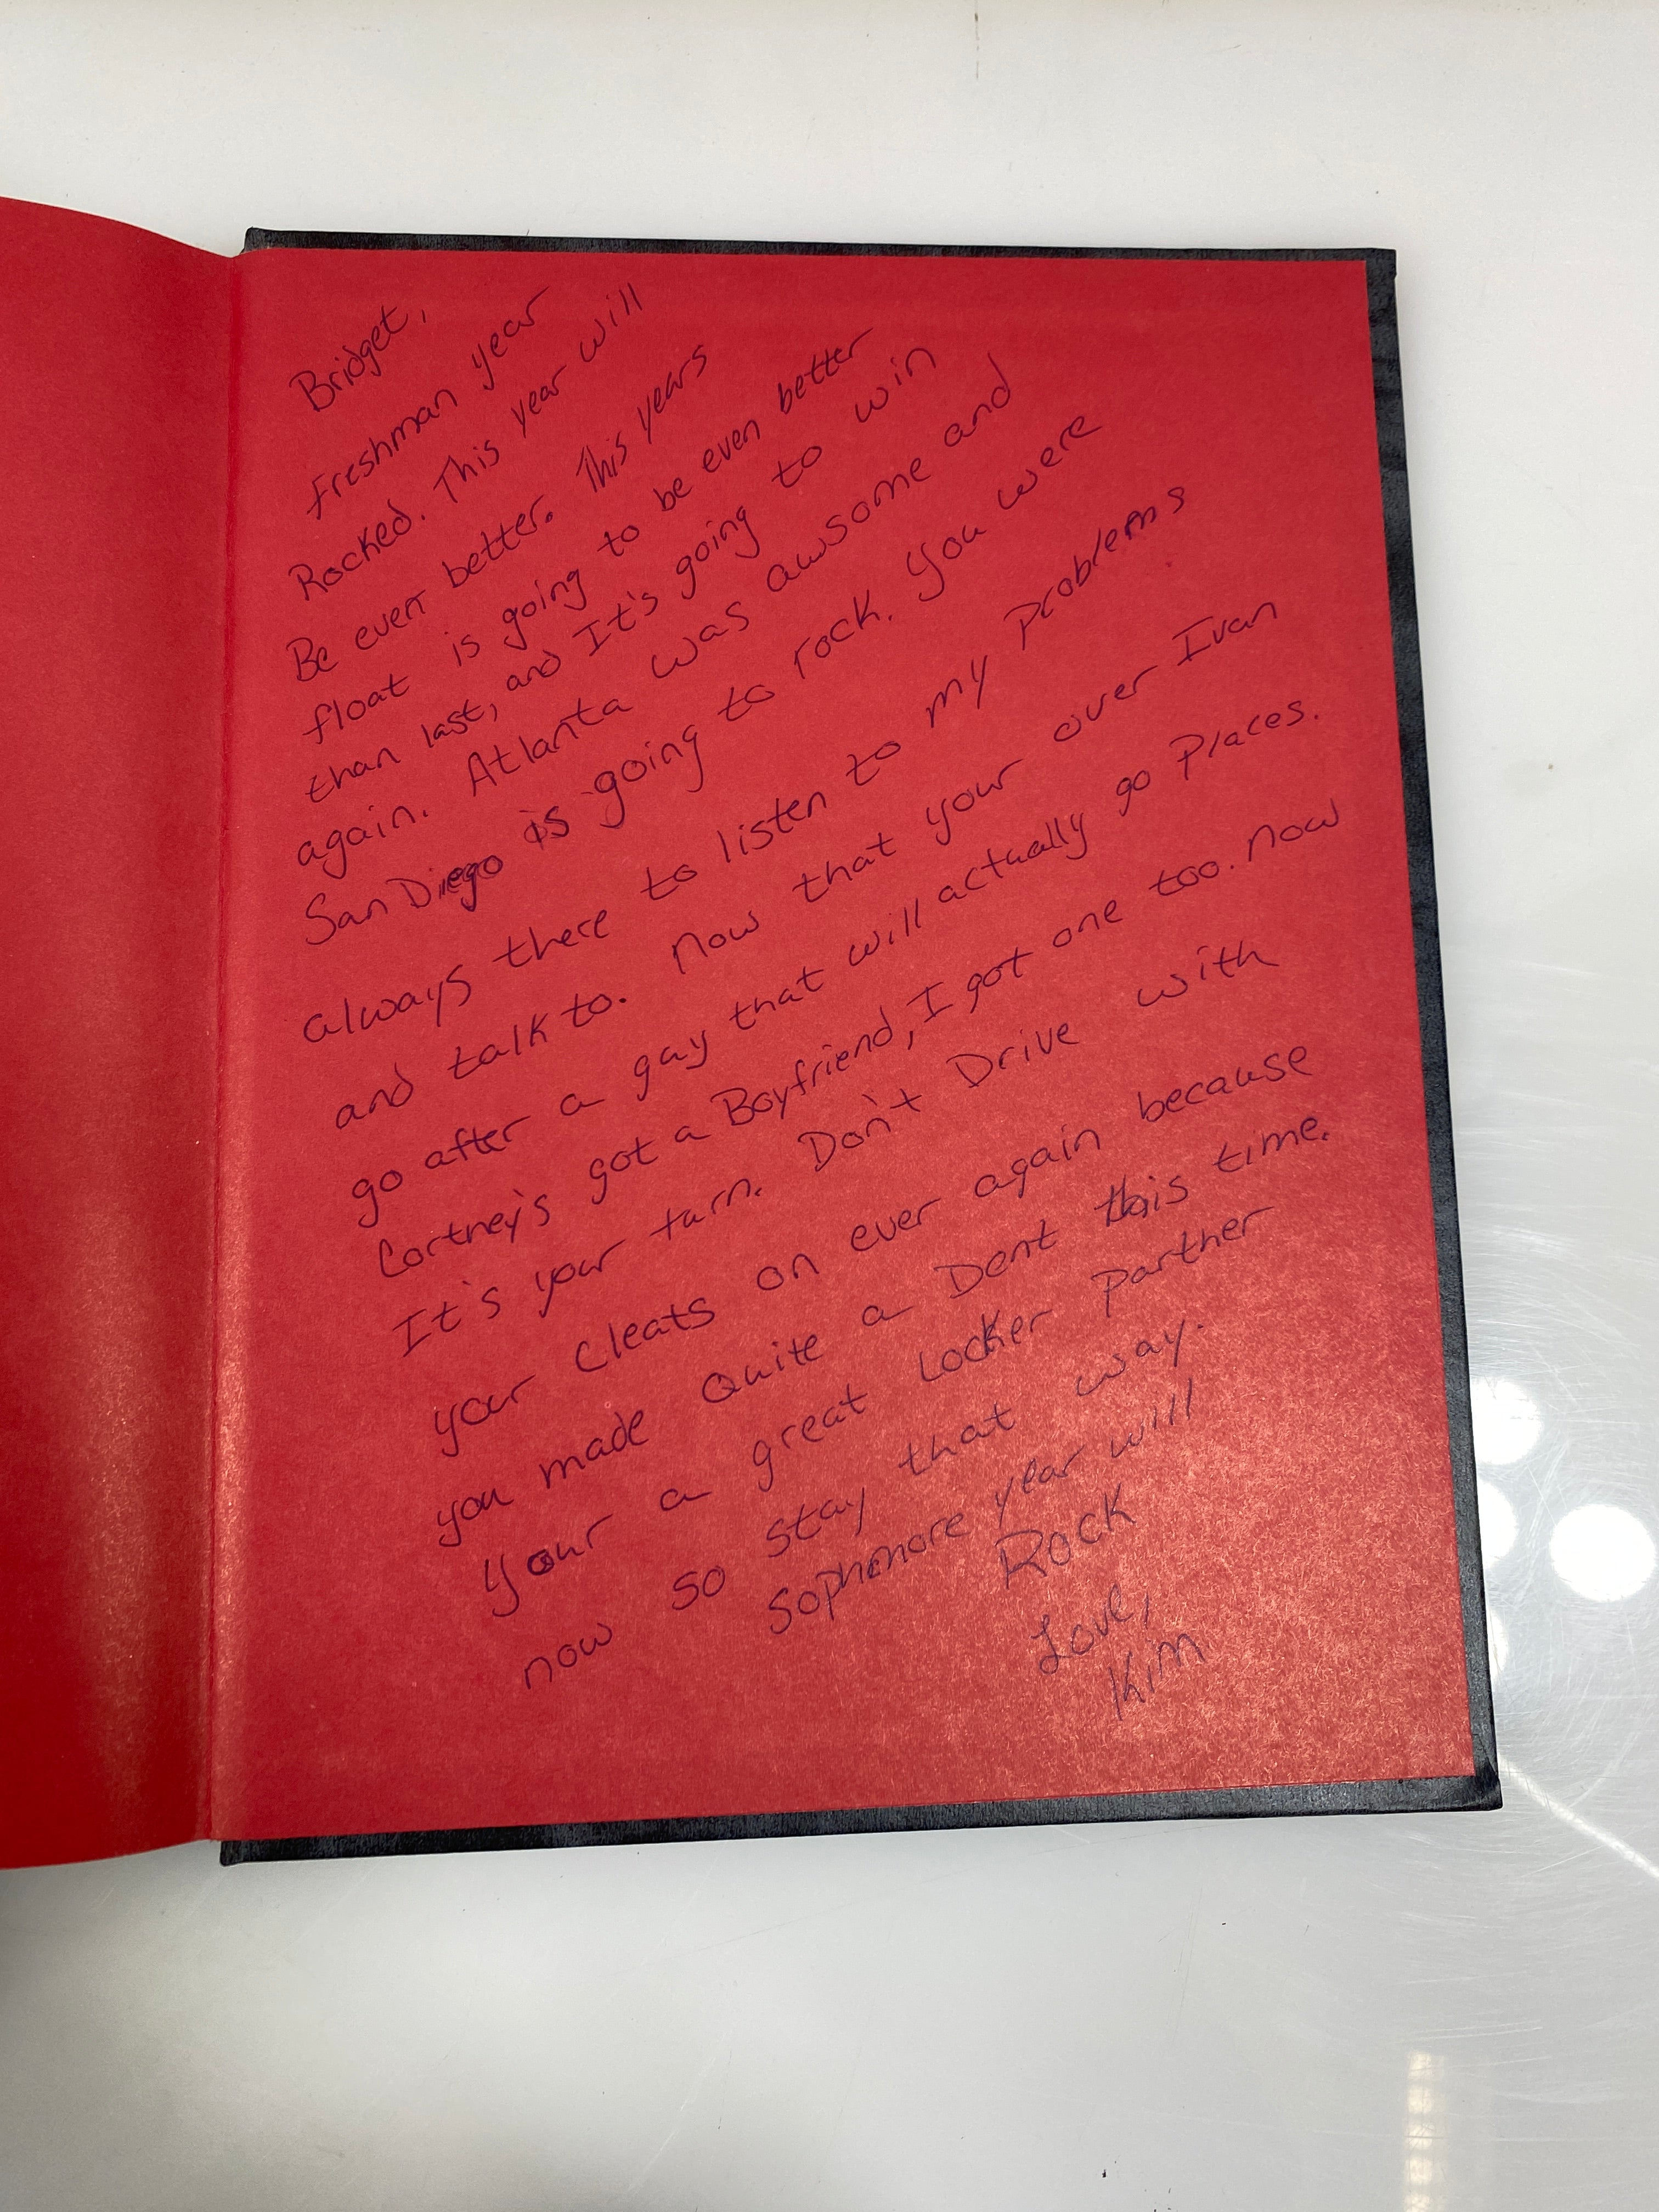 Bridget,
Freshman year
Rocked. This year will
Be even better. This years
float is going to be even better
than last, and It's going to win
again. Atlanta was awsome and
San Diego is going to rock. You were
always there to listen to my problems
and talk to. Now that your over Ivan
go after a guy that will actually go places.
Cortney's got a Boyfriend, I got one too. Now
It's your turn. Don't Drive with
your cleats on ever again because
you made Quite a Dent this time.
Your a great Locker partner
now so stay that way.
Sophmore year will
Rock
Love,
Kim